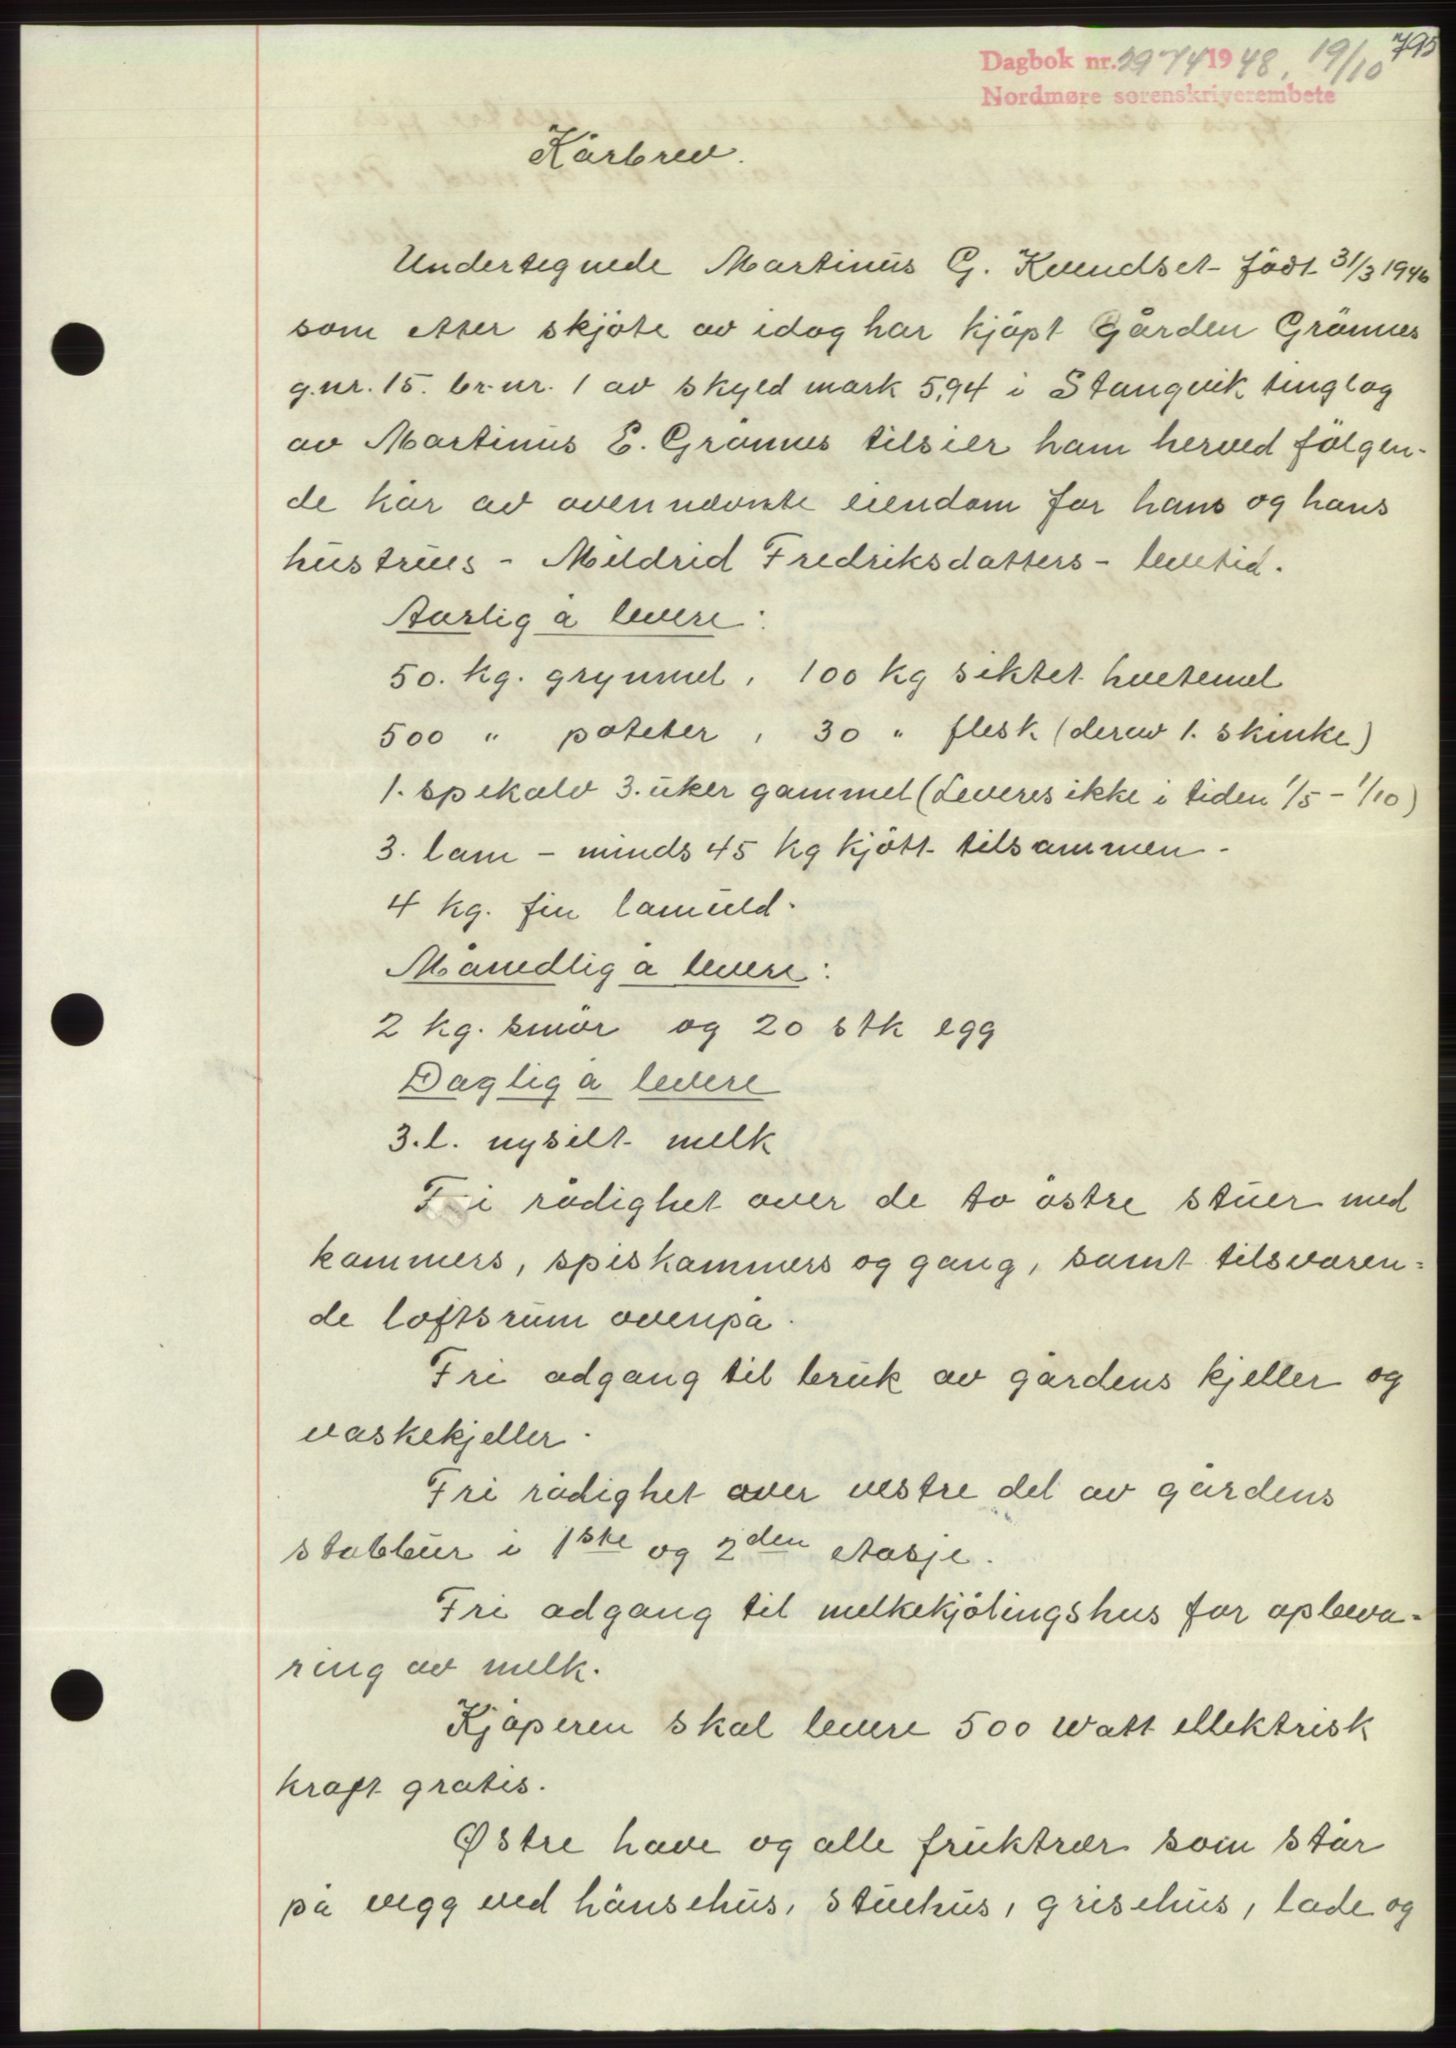 795
Dagbok nr. 2974 1948, 19/10
Nordmøre sorenskriverembete
Kårbrev.
Undertegnede Martinus G. Kvendset født 31/3 1946
som etter skjøte av idag har kjöpt Gården Grönnes
g.nr. 15. br.nr. 1 av skyld mark 5,94 i Stangvik tinglag
av Martinus E. Grönnes tilsier ham herved fölgen-
de kår av ovennævnte eiendom for hans og hans
hustrues - Mildrid Fredriksdatters - levetid.
Aarlig å levere:
50. kg. grynmel, 100 kg siktet hvetemel
500 " poteter, 30 " flesk (derav 1. skinke)
1. spekalv 3. uker gammel (Leveres ikke i tiden 1/5 - 1/10)
3. lam - minds 45 kg kjött tilsammen -
4 kg. fin lamuld.
Månedlig å levere:
2 kg. smör og 20 stk egg
Daglig å levere
3. l. nysilt melk
Fri rådighet over de to östre stuer med
kammers, spiskammers og gang, samt tilsvaren=
de loftsrum ovenpå.
Fri adgang til bruk av gårdens kjeller og
vaskekjeller.
Fri rådighet over vestre del av gårdens
stabbur i 1ske og 2den etasje.
Fri adgang til melkekjölingshus for opbeva=
ring av melk.
Kjöperen skal levere 500 watt ellektrisk
kraft gratis.
Østre have og alle fruktrær som står
på vegg ved hönsehus, stuehus, grisehus, lade og